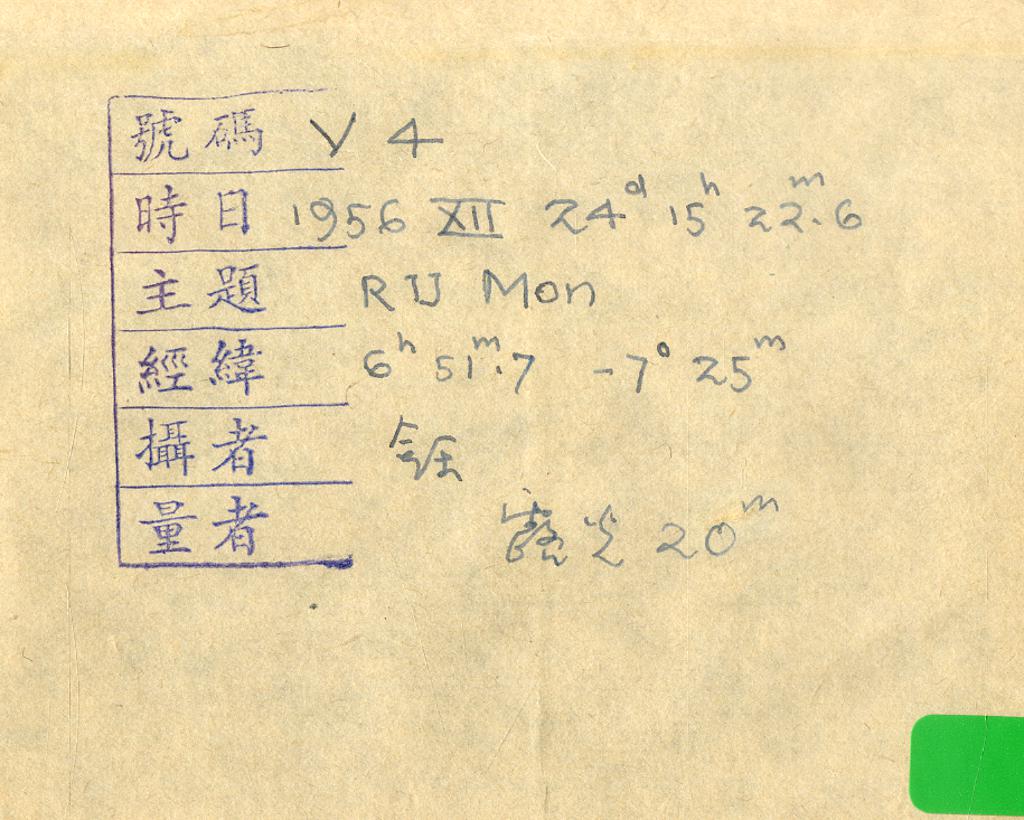 號碼 V 4
時日 1956 XII 24ᵈ 15ʰ 22ᵐ.6
主題 RU Mon
經緯 6ʰ 51ᵐ.7 -7° 25ᵐ
攝者
量者 露光 20ᵐ